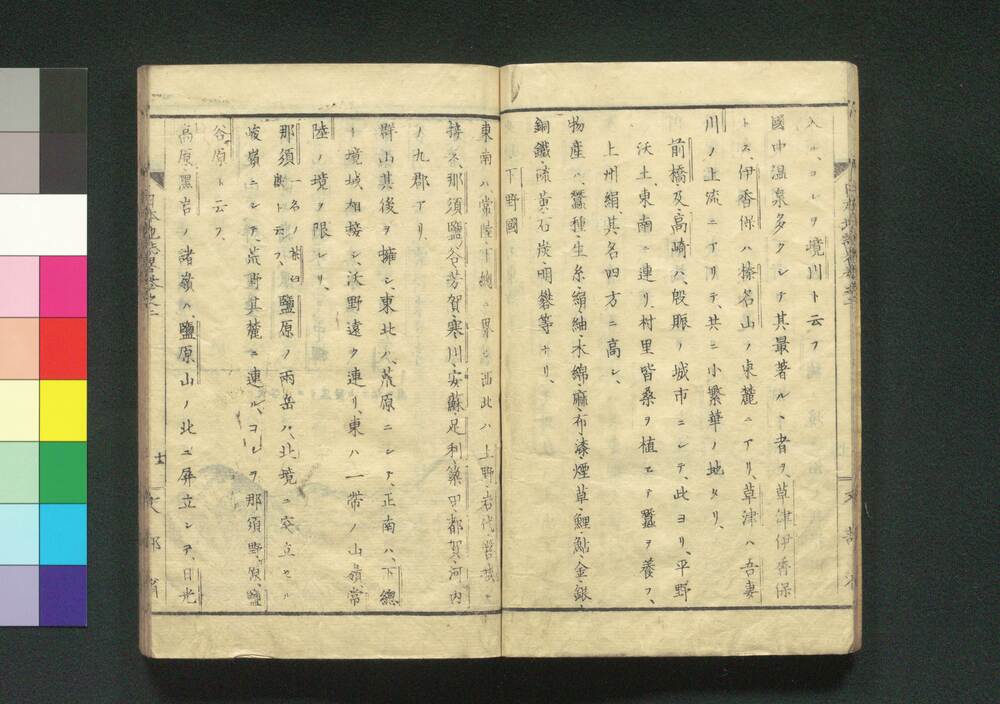 入ル、コレヲ境川ト云フ
國中温泉多クシテ其最著ルヽ者ヲ、草津伊香保
トス、伊香保ハ榛名山ノ東麓ニアリ、草津ハ吾妻
川ノ上流ニアリテ、共ニ小繁華ノ地タリ、
前橋及高崎ハ、殷賑ノ城市ニシテ、此ヨリ、平野
沃土、東南ニ連リ、村里皆桑ヲ植エテ蠶ヲ養フ、
上州絹、其名四方ニ高シ、
物産ハ、蠶種・生糸・絹・紬・木綿・麻・布・漆・煙草・鯉・鮎・金・銀・
銅・鐵・硫黄・石炭・明礬等ナリ、
下野國
東南ハ、常陸下總ニ界シ西北ハ上野・岩代・磐城ニ
接ス、那須鹽谷芳賀・寒川・安蘇・足利・簗田・都賀・河内
ノ九郡アリ、
群山其後ヲ擁シ、東北ハ、荒原ニシテ、正南ハ、下總
ト境域相接シ、沃野遠ク連リ、東ハ一帯ノ山嶺常
陸ノ境ヲ限レリ、
那須一名ノ茶臼嶽ト云フ、鹽原ノ兩岳ハ、北境ニ突立セル
峻嶺ニシテ、荒野其麓ニ連ル、コレヲ那須野原、鹽
谷原ト云フ、
高原・黒岩ノ諸嶺ハ、鹽原山ノ北ニ屏立シテ、日光
日本地誌略卷之二
十一
文部省